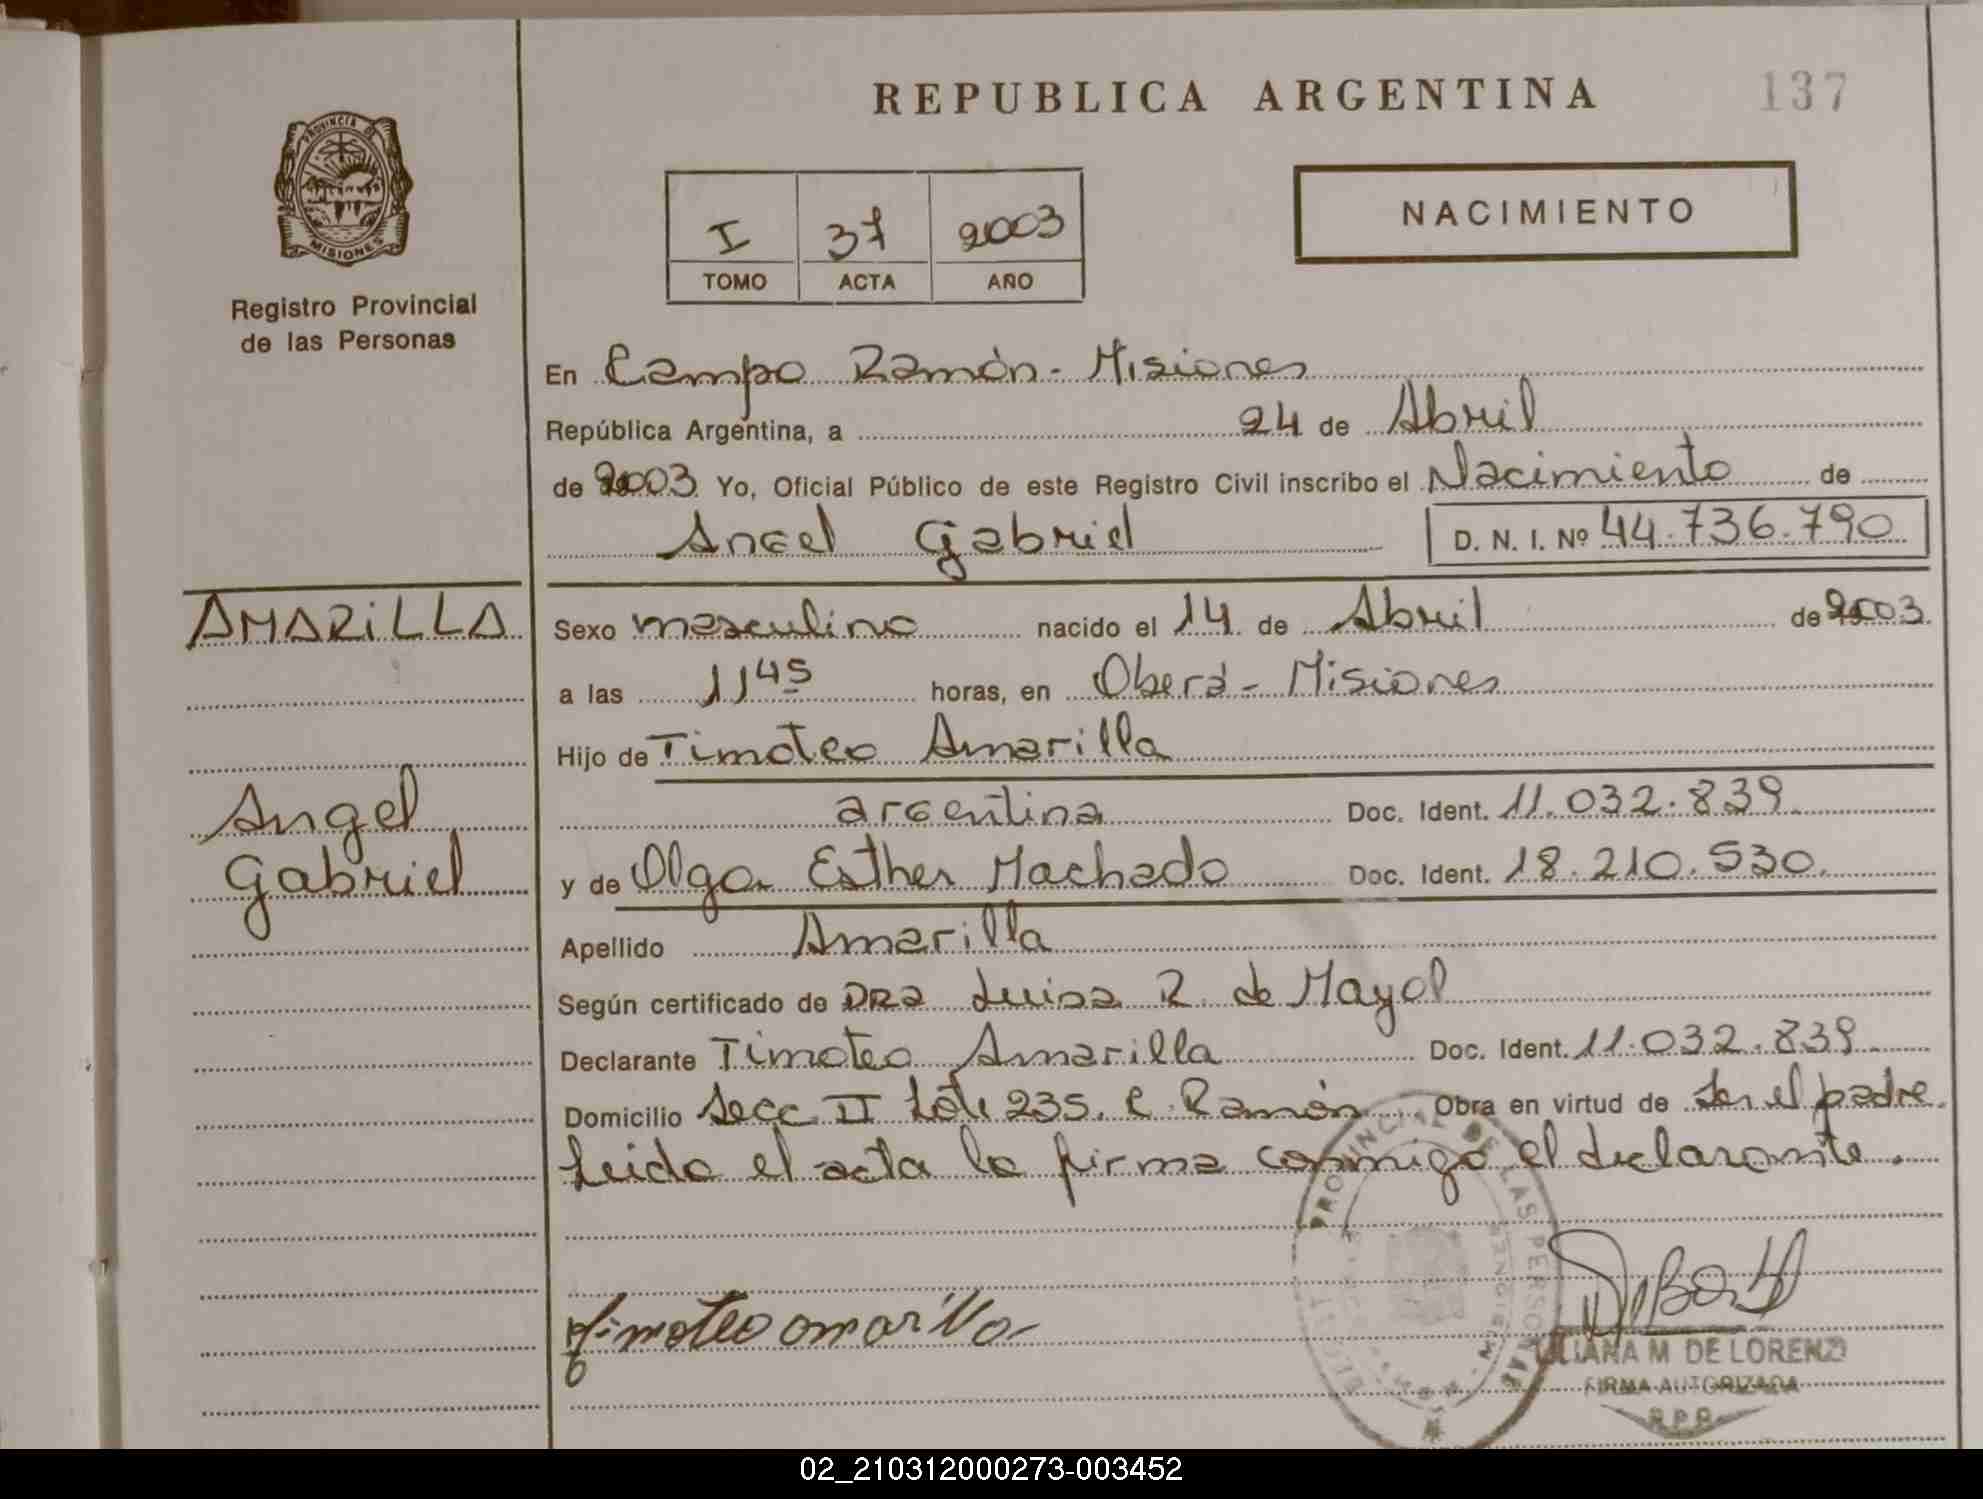 REPUBLICA ARGENTINA 137
PROVINCIA DE MISIONES
Registro Provincial
de las Personas
I 37 2003
TOMO ACTA AÑO
NACIMIENTO
En Campo Ramón - Misiones
República Argentina, a 24 de Abril
de 2003 Yo, Oficial Público de este Registro Civil inscribo el Nacimiento de
Angel Gabriel D. N. I. Nº 44.736.790
AMARILLA
Angel
Gabriel
Sexo masculino nacido el 14 de Abril de 2003
a las 11 45 horas, en Oberá - Misiones
Hijo de Timoteo Amarilla
argentina Doc. Ident. 11.032.839
y de Olga Esther Machado Doc. Ident. 18.210.530.
Apellido Amarilla
Según certificado de DRa Luisa R. de Mayol
Declarante Timoteo Amarilla Doc. Ident. 11.032.839
Domicilio Secc II Lote 235. C. Ramón Obra en virtud de Ser el padre.
Leida el acta la firma conmigo el declarante.
Timoteo amarilla
PROVINCIAL DE LAS PERSONAS
LILIANA M DE LORENZO
FIRMA AUTORIZADA
R.P.P.
02_210312000273-003452